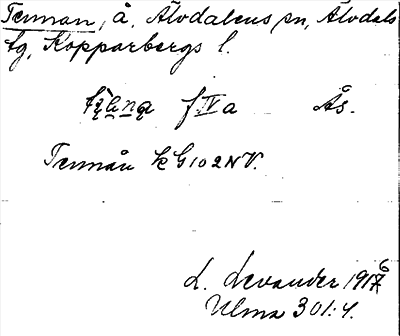 Tennan, å, Älvdalens sn, Älvdals
tg, Kopparbergs l.
f IV a Ås.
Tennån k G 102 NV.
L. Levander 1916
Ulma 301:4.